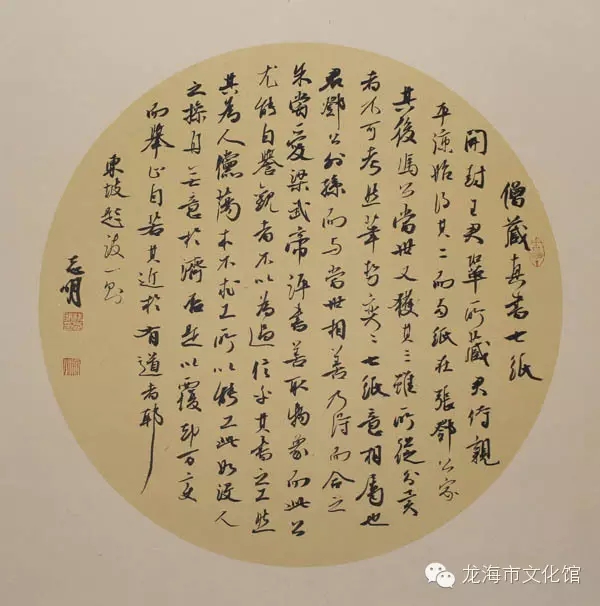 僧藏真書七紙
開封王君鞏所藏君侍親
平涼始得其二而兩紙在張鄧公家
其後馮公當世又獲其三雖所從分異
者不可考然筆勢奕〻七紙意相屬也
君鄧公外孫而与當世相善乃得而合之
余嘗愛梁武帝評書善取物象而此公
尤能自譽觀者不以為過信乎其書之工然
其為人儻蕩本不求工所以能工此如沒人
之操舟无意於濟否是以覆却万变
而舉止自若其近於有道者耶
東坡題跋一則
志明
龙海市文化馆